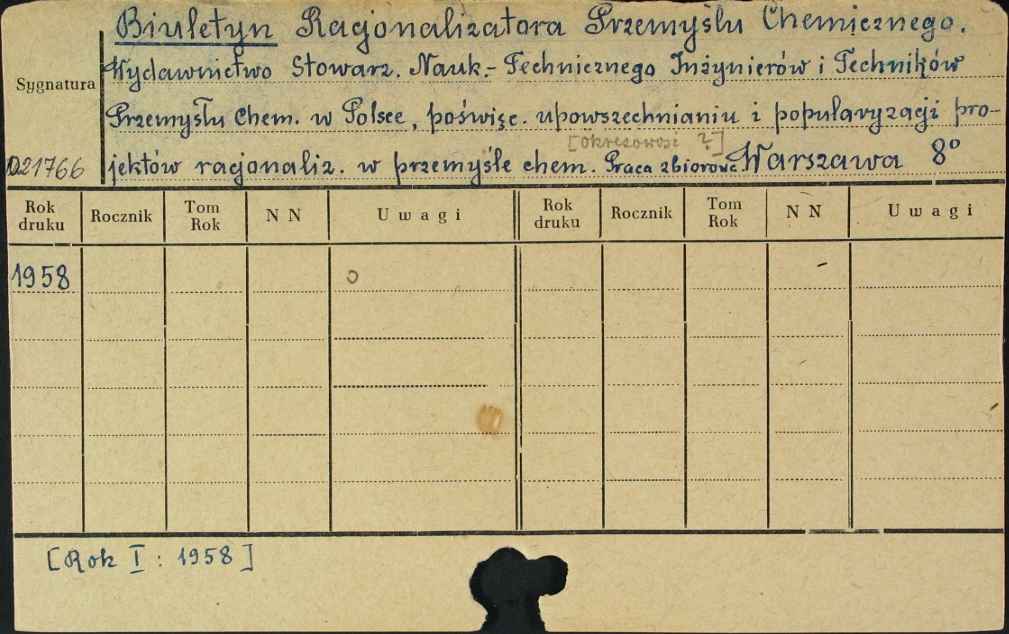 Biuletyn Racjonalizatora Przemysłu Chemicznego.
Wydawnictwo Stowarz. Nauk.-Technicznego Inżynierów i Techników
Sygnatura
Przemysłu Chem. w Polsce, poświęc. upowszechnianiu i popularyzacji pro-
[okresowość ?]
021766 jektów racjonaliz. w przemyśle chem. Praca zbiorowa Warszawa 8°
Rok druku Rocznik Tom Rok N N Uwagi Rok druku Rocznik Tom Rok N N Uwagi
1958
[Rok I : 1958]